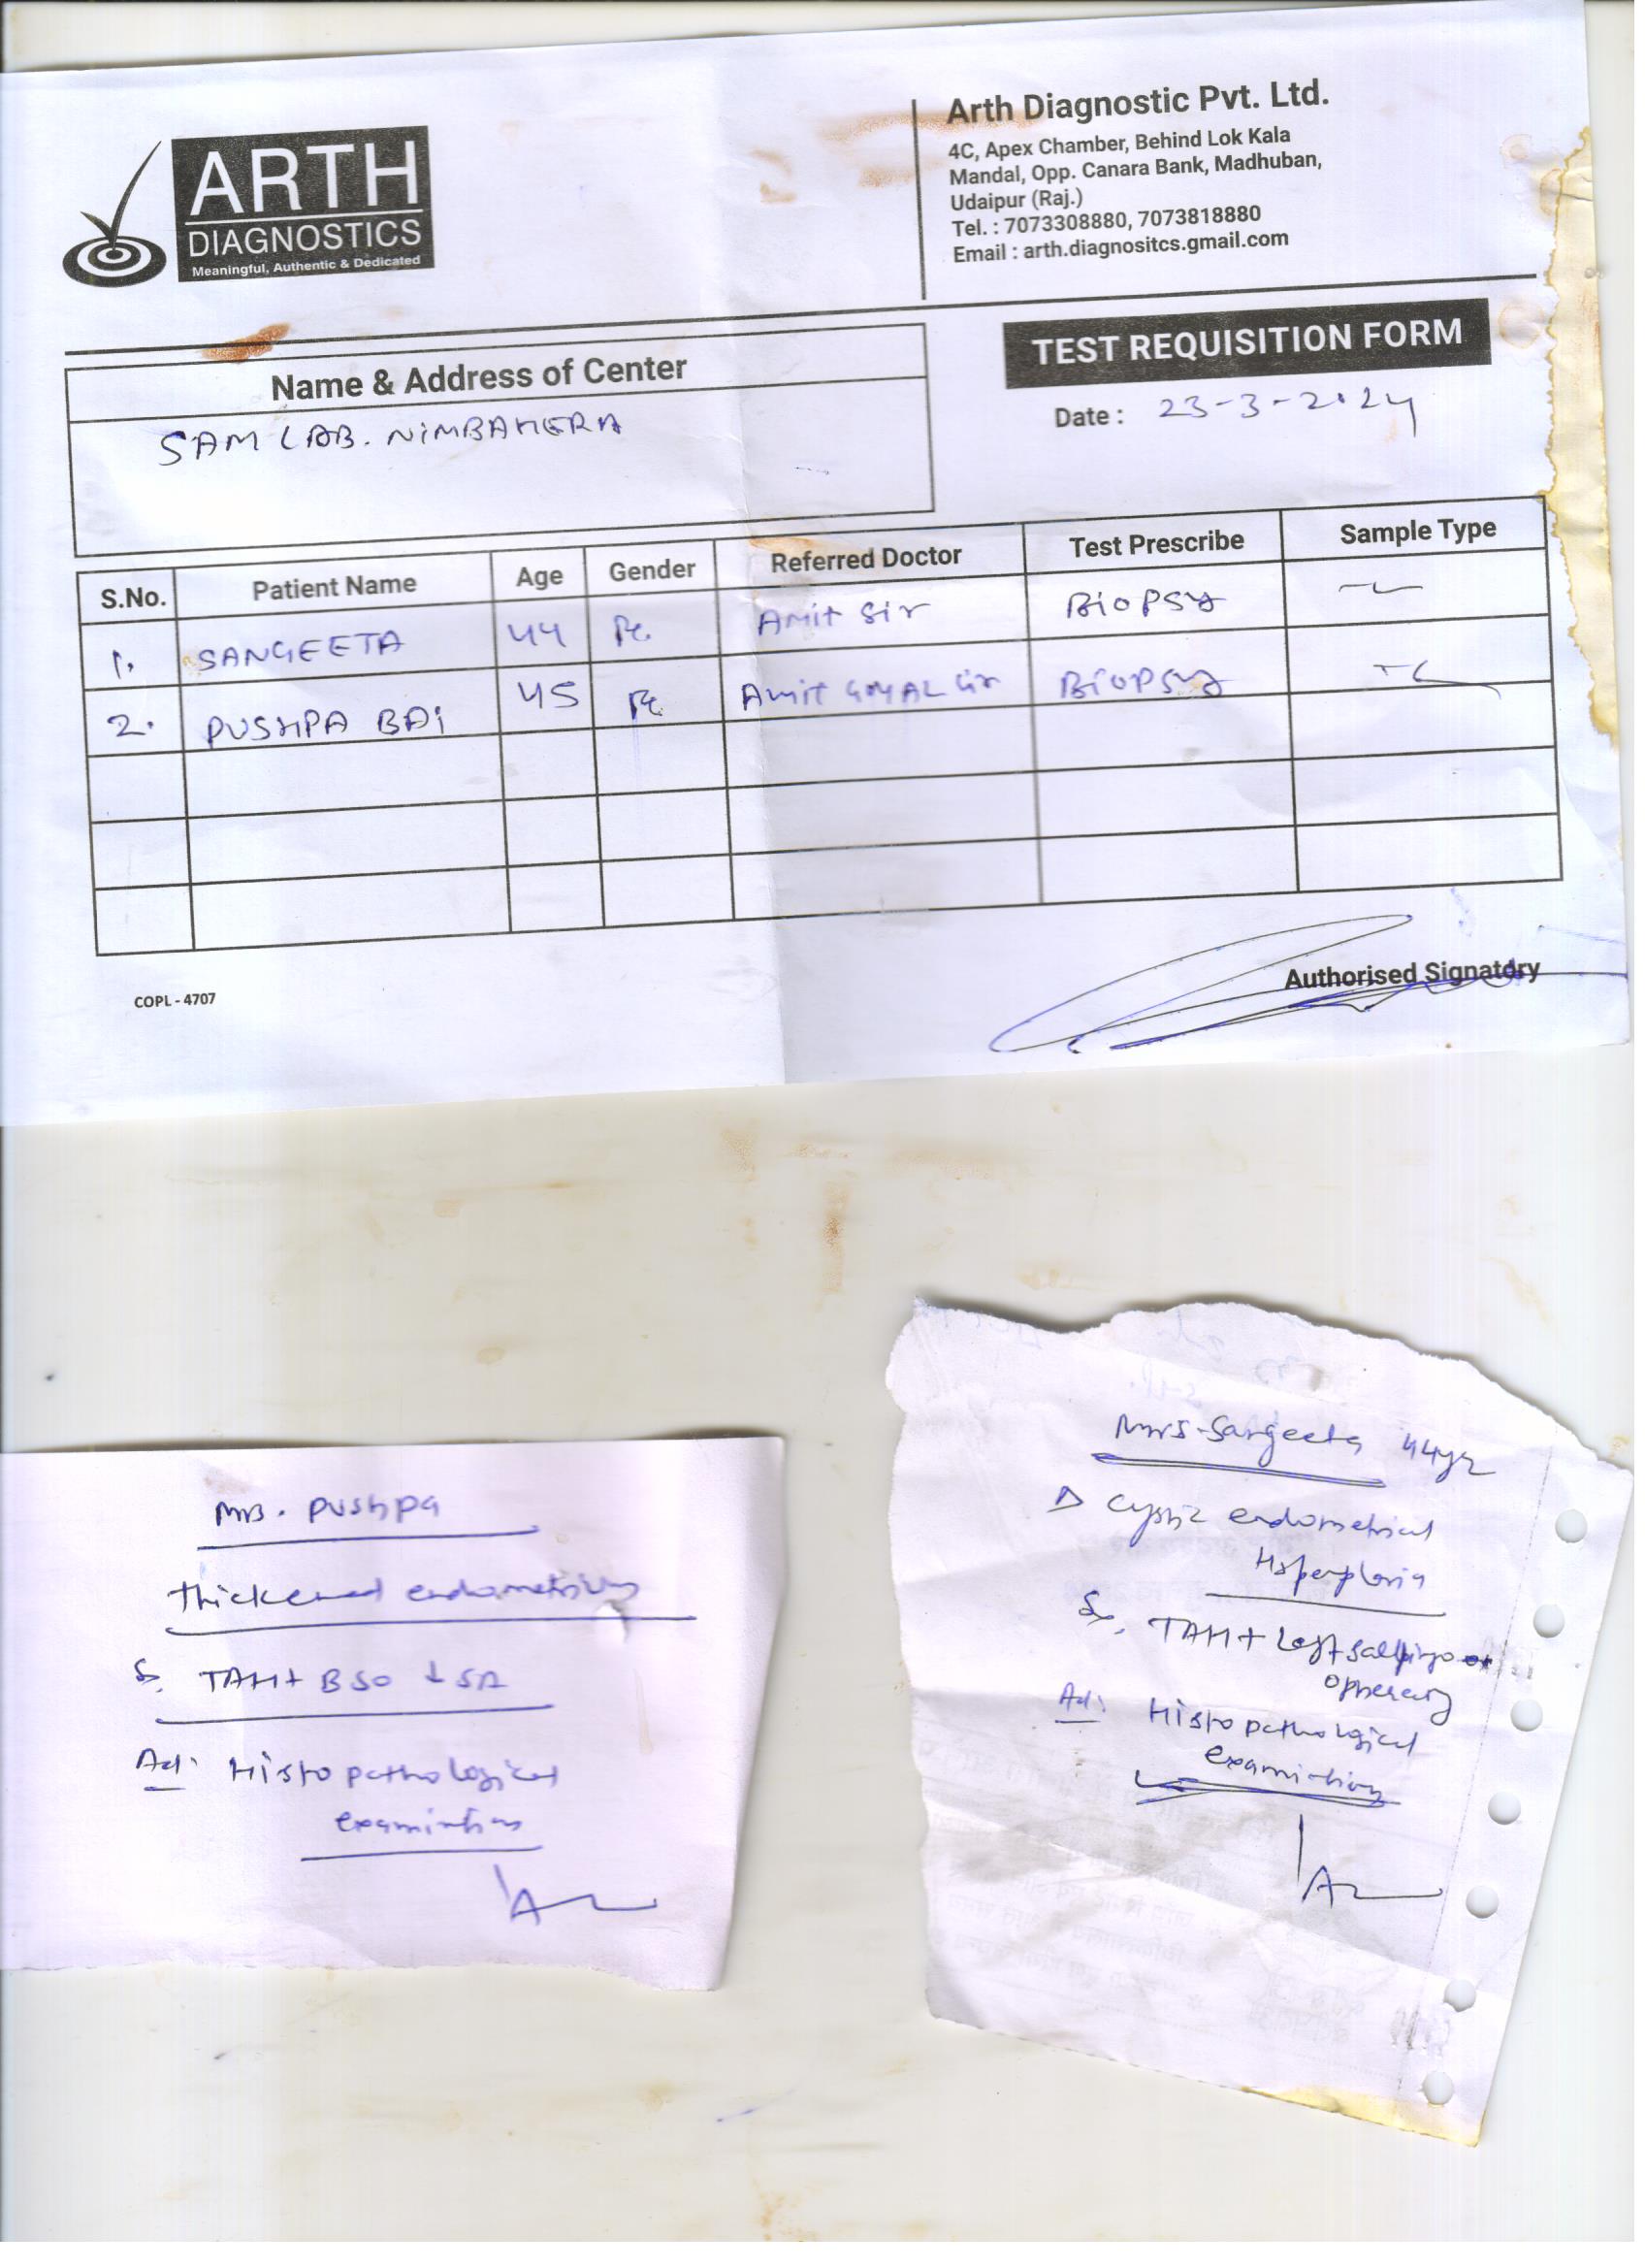 ARTH
DIAGNOSTICS
Meaningful, Authentic & Dedicated
Arth Diagnostic Pvt. Ltd.
4C, Apex Chamber, Behind Lok Kala
Mandal, Opp. Canara Bank, Madhuban,
Udaipur (Raj.)
Tel. : 7073308880, 7073818880
Email : arth.diagnositcs.gmail.com
Name & Address of Center
SAM LAB. NIMBAHERA
TEST REQUISITION FORM
Date : 23-3-2024
S.No. Patient Name Age Gender Referred Doctor Test Prescribe Sample Type
1. SANGEETA 44 Fe. Amit Sir Biopsy
2. PUSHPA BAi 45 Fe Amit GOYAL Sir Biopsy
Authorised Signatory
COPL - 4707
Mrs. Pushpa
Thickened endometrium
TAH + BSO ↓ SA
Ad: Histopathological
examination
Mrs. Sangeeta 44yr
Cystic endometrial
Hyperplasia
TAH + Left salpingo
Ad: Histopathological
examination